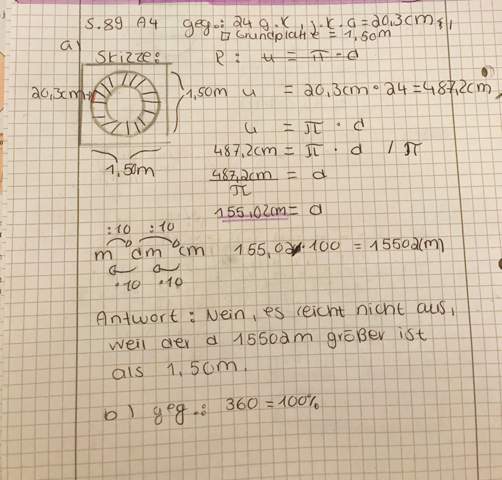 S.89 A4 geg.: 24 g.K, j.K.a=20,3cm,
□ Grundplatte = 1,50m
a) Skizze: R: u = π·d
20,3cm 1,50m u = 20,3cm·24=487,2cm
u = π · d
1,50m 487,2cm = π · d / π
487,2cm/π = d
155,02cm = d
:10 :10
m dm cm 155,02·100 = 15502(m)
·10 ·10
Antwort: Nein, es reicht nicht aus,
weil der d größer ist
als 1,50m.
b) geg.: 360 = 100%